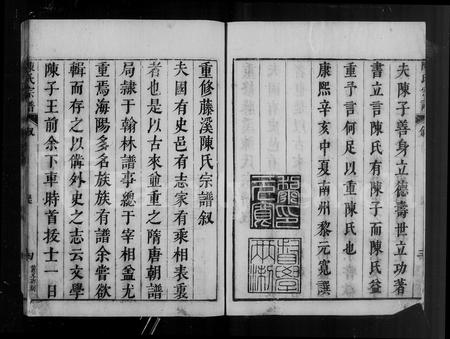 夫陳子善身立德壽世立功著
書立言陳氏有陳子而陳氏益
重予言何足以重陳氏也
康熙辛亥中夏南州黎元寬譔
重修藤溪陳氏宗譜叙
夫國有史邑有志家有乘相表裏
者也是以古來並重之隋唐朝譜
局隸于翰林譜事總于宰相蓋尤
重焉海陽多名族族有譜余嘗欲
輯而存之以備外史之志云文學
陳子王前余下車時首拔士一日
陳氏宗譜
叙